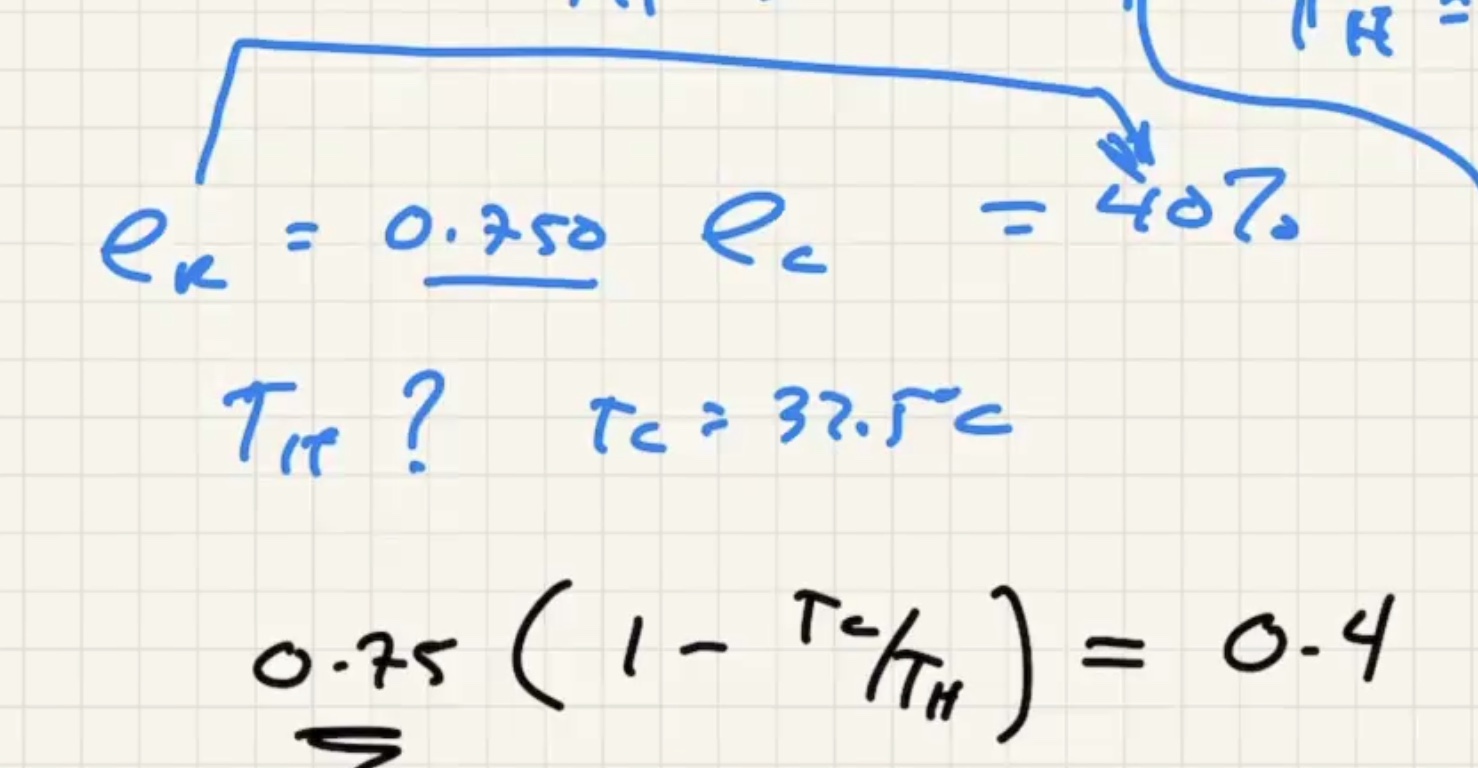 T_H =
e_R = 0.750 e_c = 40%
T_H ? T_c = 37.5°C
0.75 (1 - T_c/T_H) = 0.4